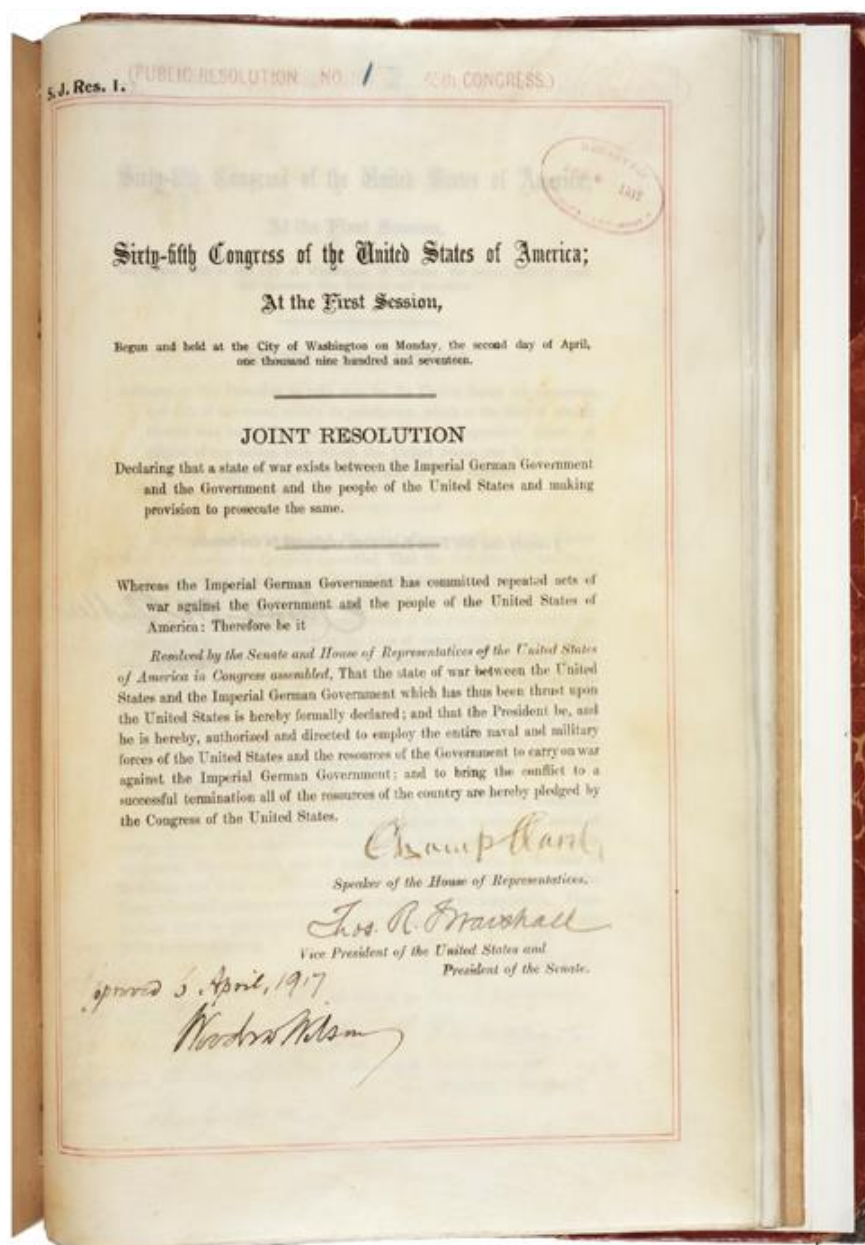 S. J. Res. 1.
(PUBLIC RESOLUTION NO. 1 65th CONGRESS.)
1917
Sixty-fifth Congress of the United States of America;
At the First Session,
Begun and held at the City of Washington on Monday, the second day of April,
one thousand nine hundred and seventeen.
JOINT RESOLUTION
Declaring that a state of war exists between the Imperial German Government
and the Government and the people of the United States and making
provision to prosecute the same.
Whereas the Imperial German Government has committed repeated acts of
war against the Government and the people of the United States of
America: Therefore be it
Resolved by the Senate and House of Representatives of the United States
of America in Congress assembled, That the state of war between the United
States and the Imperial German Government which has thus been thrust upon
the United States is hereby formally declared; and that the President be, and
he is hereby, authorized and directed to employ the entire naval and military
forces of the United States and the resources of the Government to carry on war
against the Imperial German Government; and to bring the conflict to a
successful termination all of the resources of the country are hereby pledged by
the Congress of the United States.
Champ Clark
Speaker of the House of Representatives.
Thos. R. Marshall
Vice President of the United States and
President of the Senate.
Approved 6 April, 1917
Woodrow Wilson